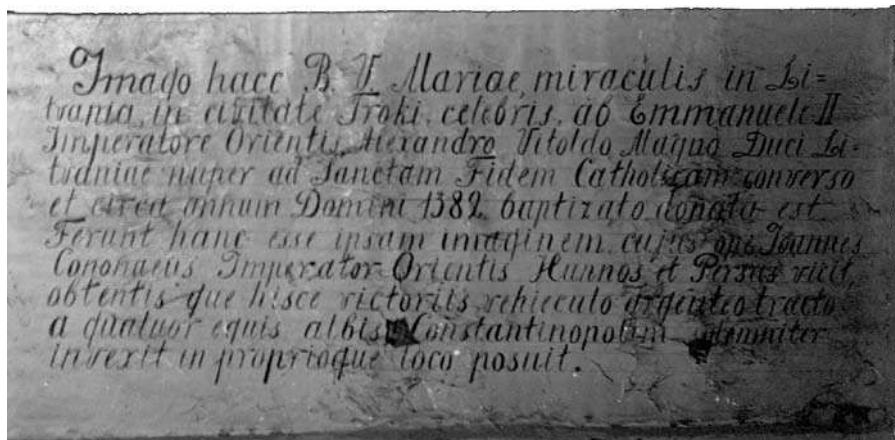 Imago haec B. V. Mariae, miraculis in Li=
tvania, in civitate Troki, celebris, ab Emmanuele II
Imperatore Orientis, Alexandro Vitoldo Magno Duci Li-
tvaniae nuper ad Sanctam Fidem Catholicam converso
et circa annum Domini 1382 baptizato donata est.
Ferunt hanc esse ipsam imaginem, cujus ope Joannes
Imperator Orientis Hunnos et Persas vicit,
obtentis que hisce victoriis vehiculo argenteo tracto
a quatuor equis albis Constantinopolim solemniter
invexit in proprioque loco posuit.